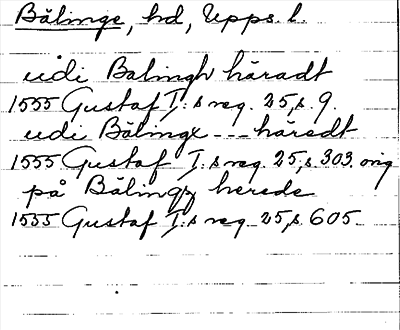 Bälinge, hd, Upps. l.
udi Balingh häradt
1555 Gustaf I:s reg. 25, s. 9.
udi Bälinge --- häredt
1555 Gustaf I:s reg. 25, s. 303. orig
på Bälingz herede
1555 Gustaf I:s reg. 25, s. 605.